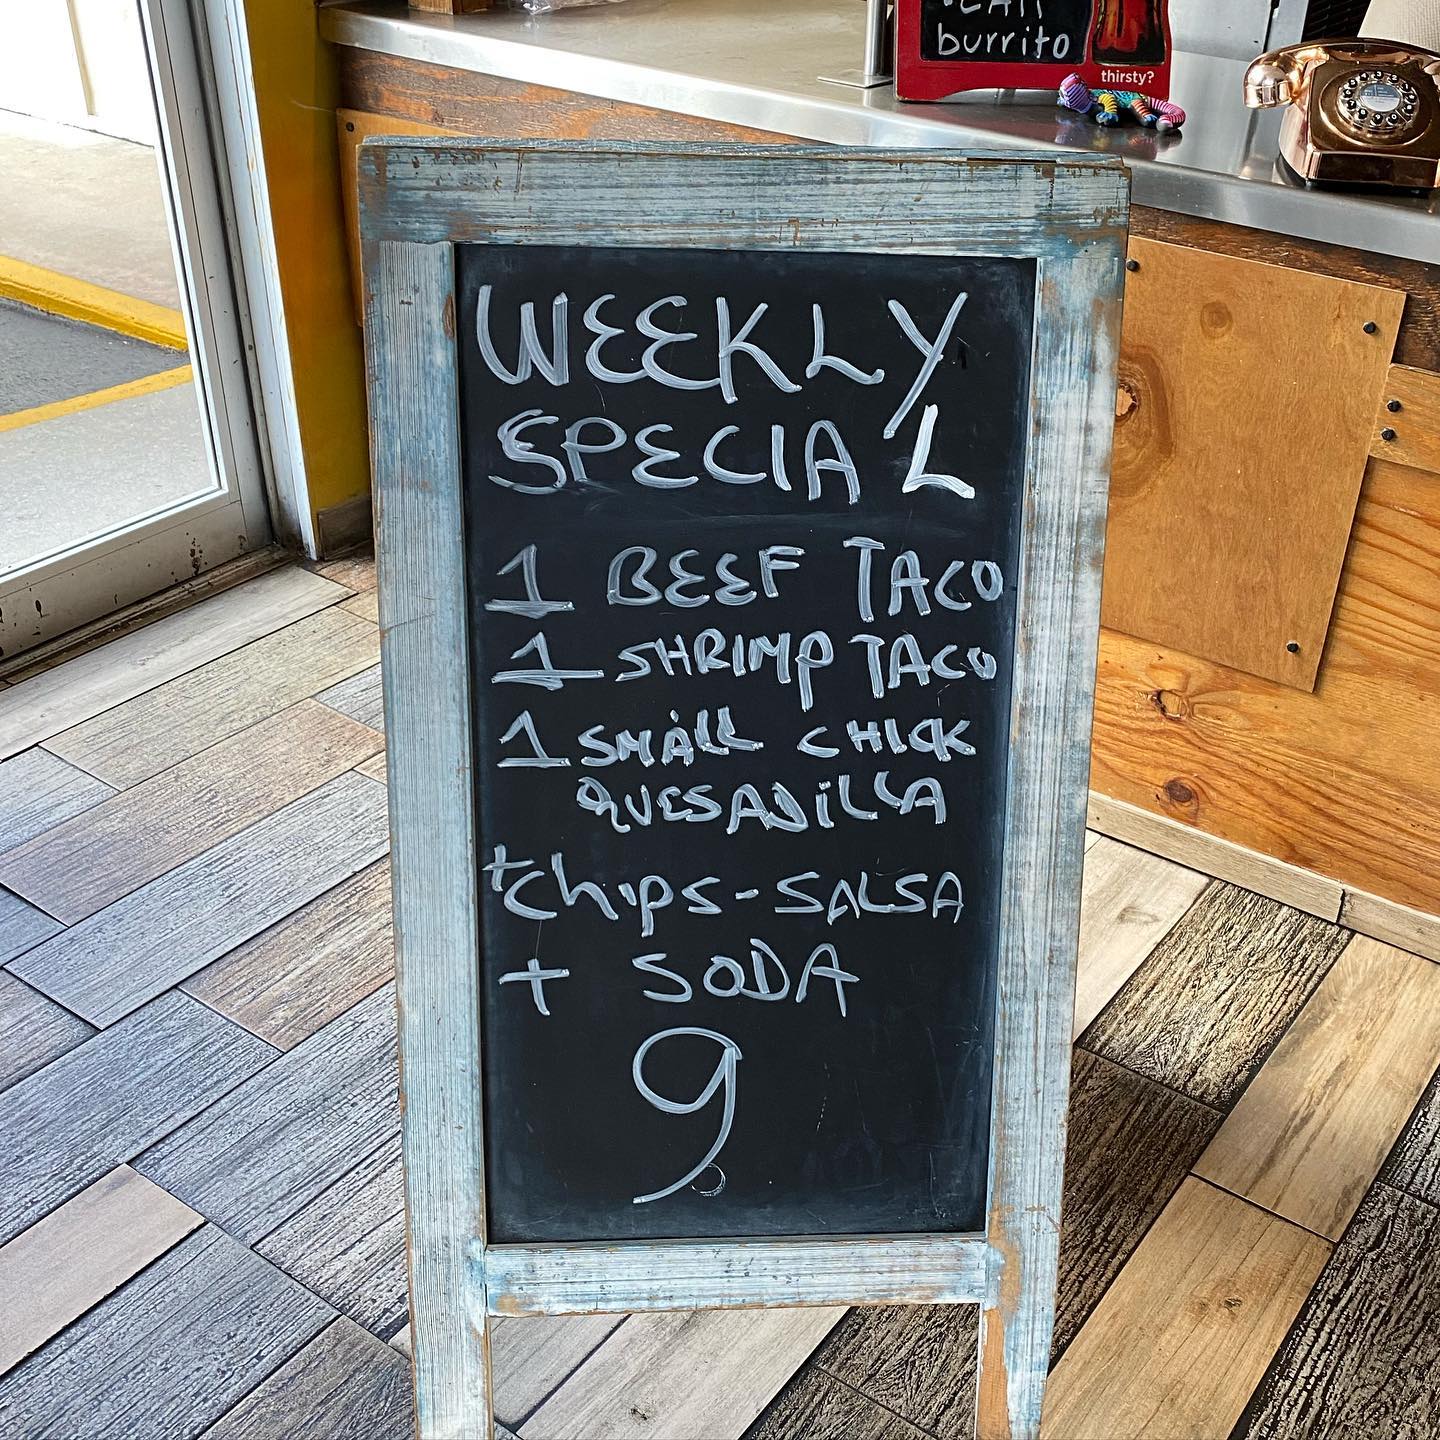 burrito
thirsty?
WEEKLY
SPECIAL
1 BEEF TACO
1 SHRIMP TACO
1 SMALL CHICK
QUESADILLA
+ Chips - SALSA
+ SODA
9.